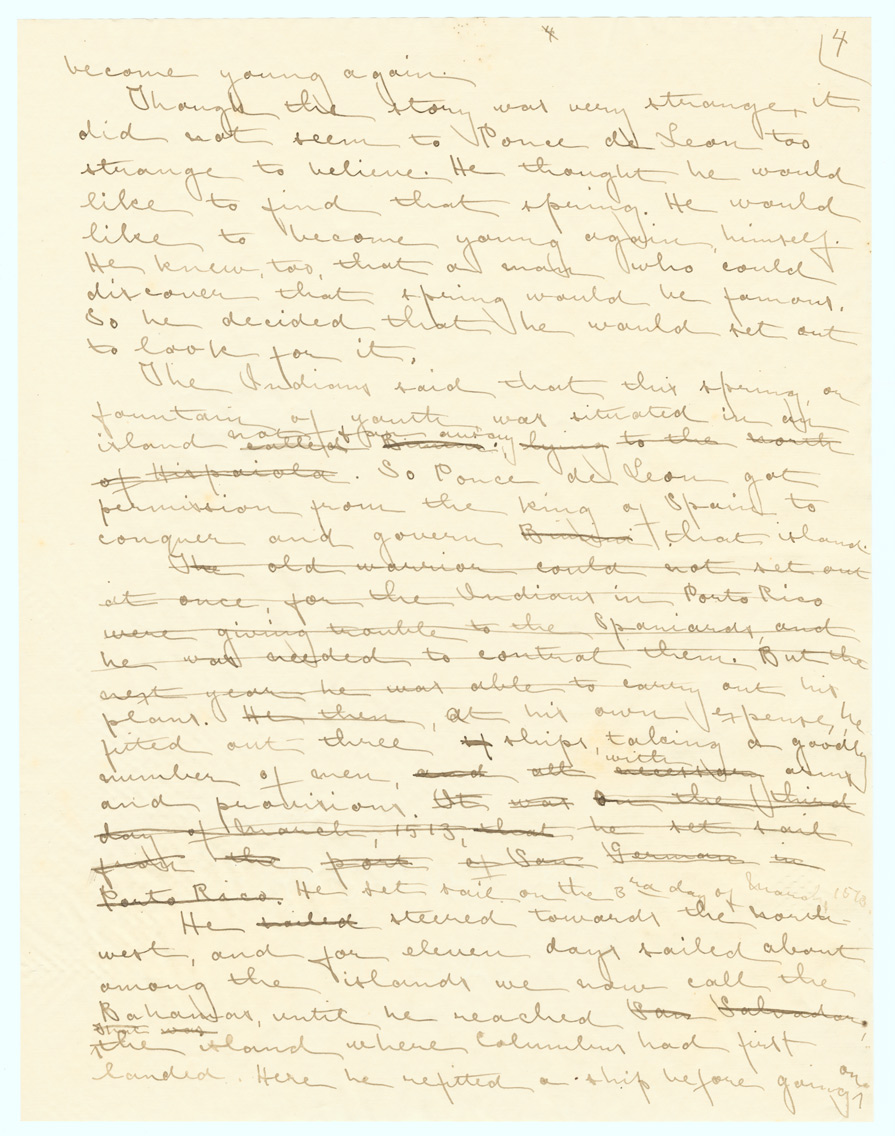 4
become young again.
Though the story was very strange, it
did not seem to Ponce de Leon too
strange to believe. He thought he would
like to find that spring. He would
like to become young again, himself.
He knew, too, that a man who could
discover that spring would be famous.
So he decided that he would set out
to look for it.
The Indians said that this spring, or
fountain of youth was situated in an
not far away
island called Bimini, lying to the north
of Hispaiola. So Ponce de Leon got
permission from the king of Spain to
conquer and govern Bimini that island.
The old warrior could not set out
at once, for the Indians in Porto Rico
were giving trouble to the Spaniards, and
he was needed to control them. But the
next year he was able to carry out his
plans. He then, At his own expense, he
fited out three ships, taking a goodly
with
number of men, and all necessary arms
and provisions. It was on the third
day of March, 1513, that he set sail
from the port of San German in
Porto Rico. He set sail on the 3rd day of March, 1513.
He sailed steered towards the north-
west, and for eleven days sailed about
among the islands we now call the
Bahamas, until he reached San Salvador,
that was
the island where Columbus had first
landed. Here he refitted a ship before going on